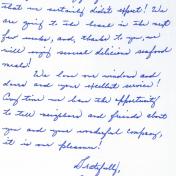 that we certainly didn't expect! We
are going to the beach in the next
few weeks, and, thanks to you, we
will enjoy several delicious seafood
meals!
We love our windows and
doors and your excellent service!
Any time we have the opportunity
to tell neighbors and friends about
you and your wonderful company,
it is our pleasure!
Gratefully,